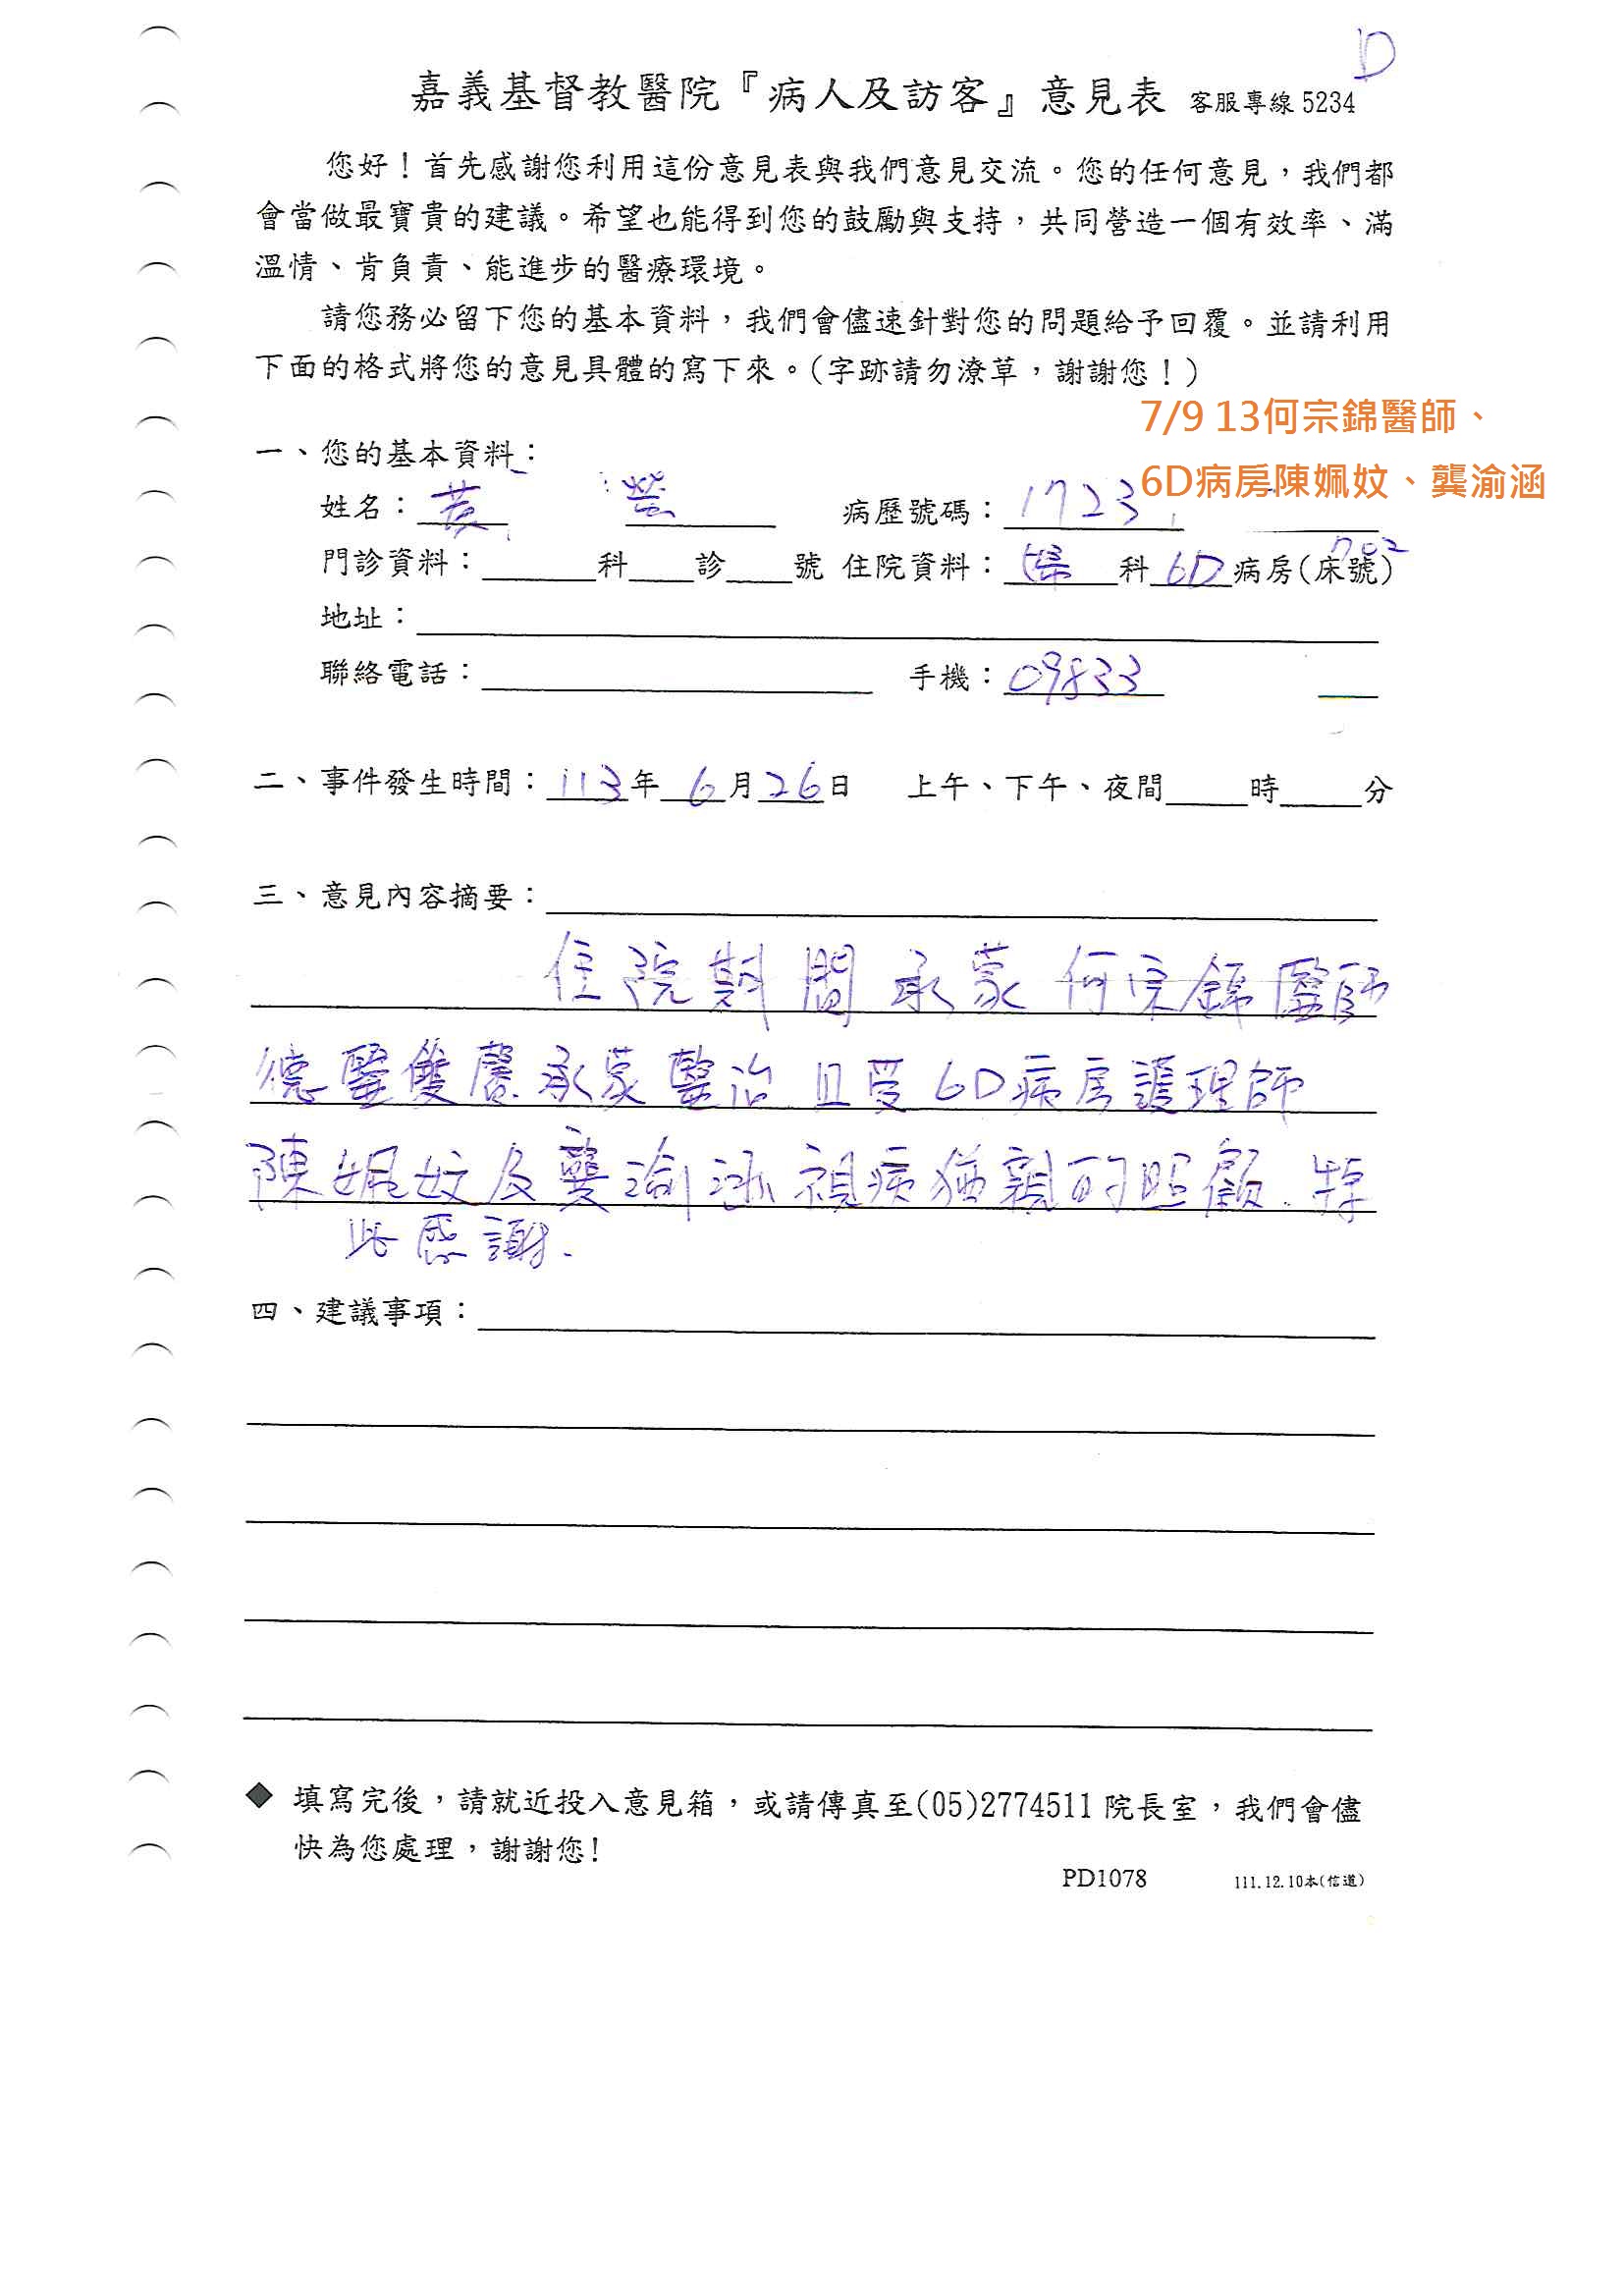 D
嘉義基督教醫院『病人及訪客』意見表 客服專線 5234
您好！首先感謝您利用這份意見表與我們意見交流。您的任何意見，我們都
會當做最寶貴的建議。希望也能得到您的鼓勵與支持，共同營造一個有效率、滿
溫情、肯負責、能進步的醫療環境。
請您務必留下您的基本資料，我們會儘速針對您的問題給予回覆。並請利用
下面的格式將您的意見具體的寫下來。(字跡請勿潦草，謝謝您！)
7/9 13何宗錦醫師、
6D病房陳姵妏、龔渝涵
一、您的基本資料：
姓名：黃 瑩 病歷號碼：1723
門診資料：科 診 號 住院資料：科 6D 病房(床號) 702
地址：
聯絡電話： 手機：09833
二、事件發生時間：113年6月26日 上午、下午、夜間 時 分
三、意見內容摘要：
住院期間承蒙何宗錦醫師
德醫雙馨承蒙醫治且受6D病房護理師
陳姵妏及龔渝涵視病猶親的照顧.特
此感謝.
四、建議事項：
◆ 填寫完後，請就近投入意見箱，或請傳真至(05)2774511 院長室，我們會儘
快為您處理，謝謝您!
PD1078 111.12.10本(信道)